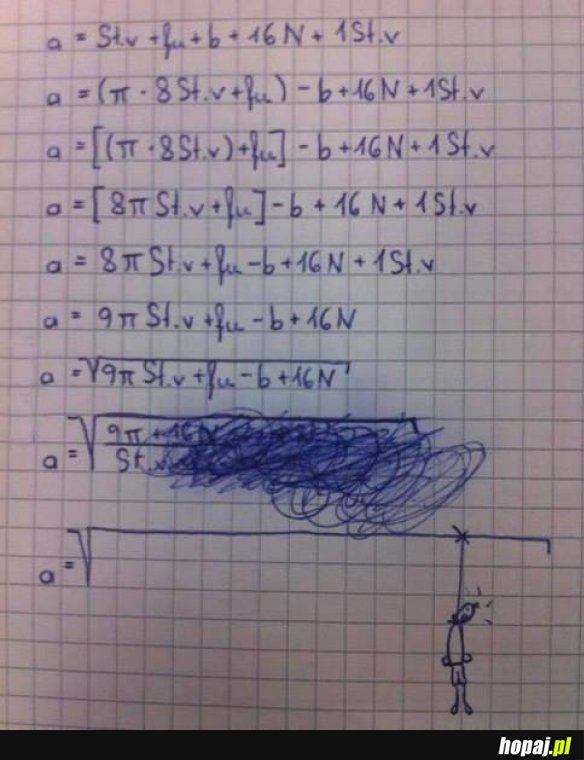 a = St.v + fu + b + 16 N + 1 St.v
a = (π · 8 St.v + fu) - b + 16 N + 1 St.v
a = [(π · 8 St.v) + fu] - b + 16 N + 1 St.v
a = [8π St.v + fu] - b + 16 N + 1 St.v
a = 8π St.v + fu - b + 16 N + 1 St.v
a = 9π St.v + fu - b + 16 N
a = √9π St.v + fu - b + 16 N
a = √9π + 16 N
St.
a = √
hopaj.pl